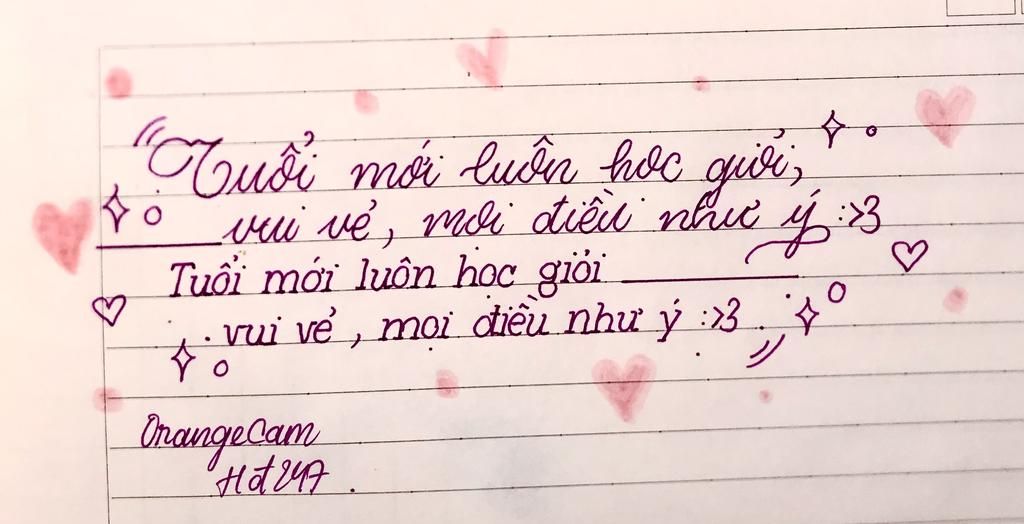 Tuổi mới luôn học giỏi,
vui vẻ, mọi điều như ý :>3
Tuổi mới luôn học giỏi
vui vẻ, mọi điều như ý :>3
OrangeCam
Hd247.